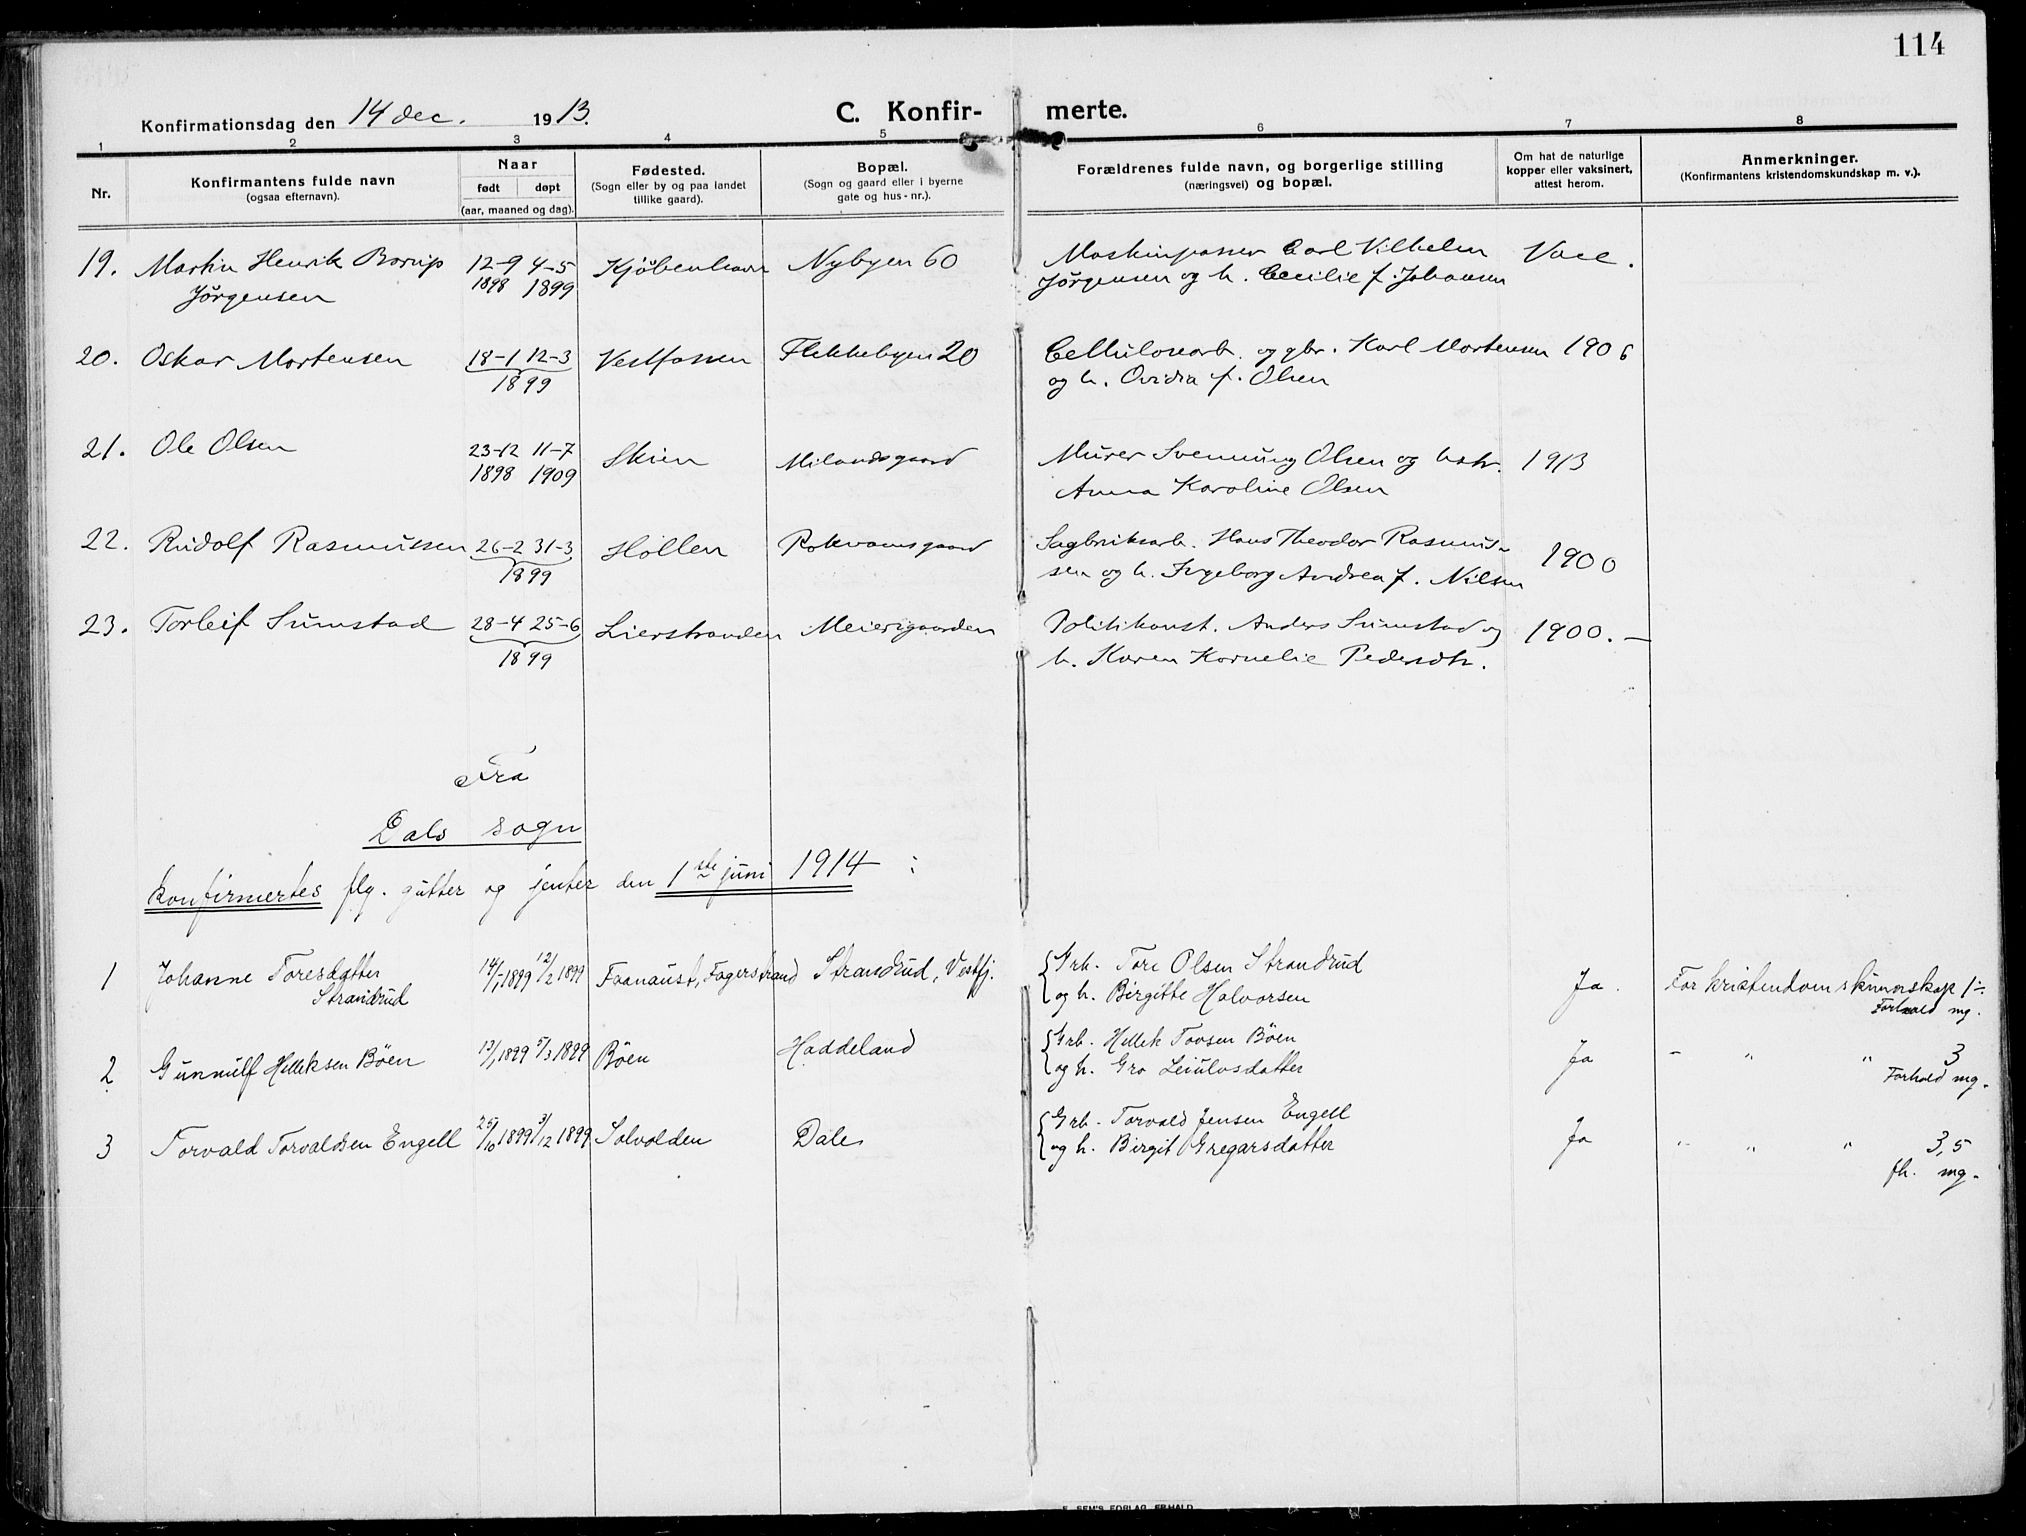 114
Konfirmationsdag den 14 dec. 1913.
C. Konfir- merte.
1 2 3 4 5 6 7 8
Nr.
Konfirmantens fulde navn
(ogsaa efternavn).
Naar
født døpt
(aar, maaned og dag).
Fødested.
(Sogn eller by og paa landet
tillike gaard).
Bopæl.
(Sogn og gaard eller i byerne
gate og hus-nr.).
Forældrenes fulde navn, og borgerlige stilling
(næringsvei) og bopæl.
Om hat de naturlige
kopper eller vaksinert,
attest herom.
Anmerkninger.
(Konfirmantens kristendomskundskap m. v.).
19. Martin Henrik Borup 12-9 4-5 Kjøbenhavn Nybyen 60 Maskinpasser Carl Vilhelm Vacc.
Jørgensen 1898 1899 Jørgensen og h. Cecilie f. Johansen
20. Oskar Mortensen 18-1 12-3 Vestfossen Flekkebyen 20 Cellulosearb. og gbr. Karl Mortensen 1906
1899 og h. Ovidia f. Olsen
21. Ole Olsen 23-12 11-7 Skien Milandsgaard Murer Svennung Olsen og hstr. 1913
1898 1909 Anna Karoline Olsen
22. Rudolf Rasmussen 26-2 31-3 Hollen Rokvamsgaard Sagbruksarb. Hans Theodor Rasmus- 1900
1899 sen og h. Ingeborg Andrea f. Nilsen
23. Torleif Sumstad 28-4 25-6 Lierstranden Meierigaarden Politikonst. Anders Sumstad og 1900. —
1899 h. Karen Kornelie Pedersdtr.
Fra
Dals sogn
konfirmertes flg. gutter og jenter den 1ste juni 1914 :
1 Johanne Toresdatter 14/1 1899 12/2 1899 Faanaust, Fagerstrand Strandrud, Vestfj. Grb. Tore Olsen Strandrud Ja. For kristendomskunnskap 1 ÷
Strandrud og h. Birgitte Halvorsen Forhold mg.
2 Gunnulf Helleksen Böen 13/1 1899 5/3 1899 Böen Haddeland Grb. Hellek Tovsen Böen Ja - " " 3
og h. Gro Leiulvsdatter Forhold mg.
3 Torvald Torvaldsen Engell 25/10 1899 3/12 1899 Solvolden Dale Grb. Torvald Jensen Engell Ja " " " 3,5
og h. Birgit Gregarsdatter fh. mg.
E. SEM'S FORLAG, FR.HALD